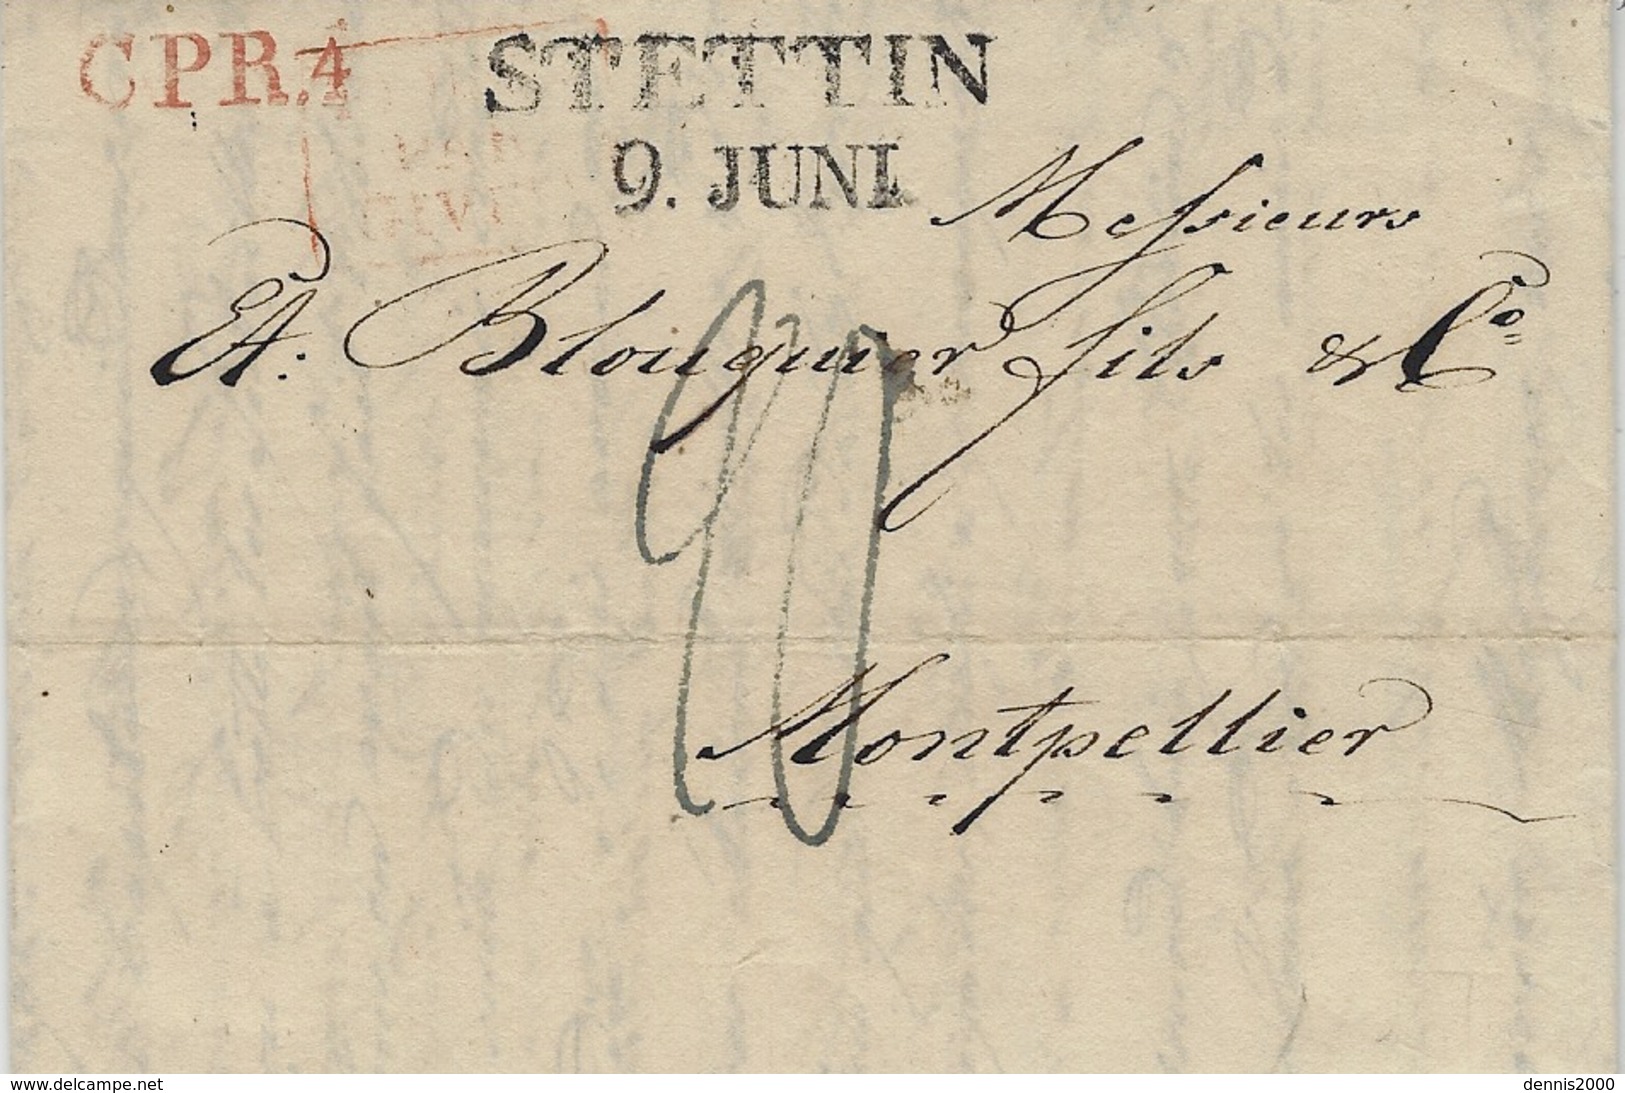 CPR.4
STETTIN
9. JUNI.
PAR
GIVET
Messieurs
Et. Blouquier fils & Co.
20
Montpellier
www.delcampe.net
dennis2000